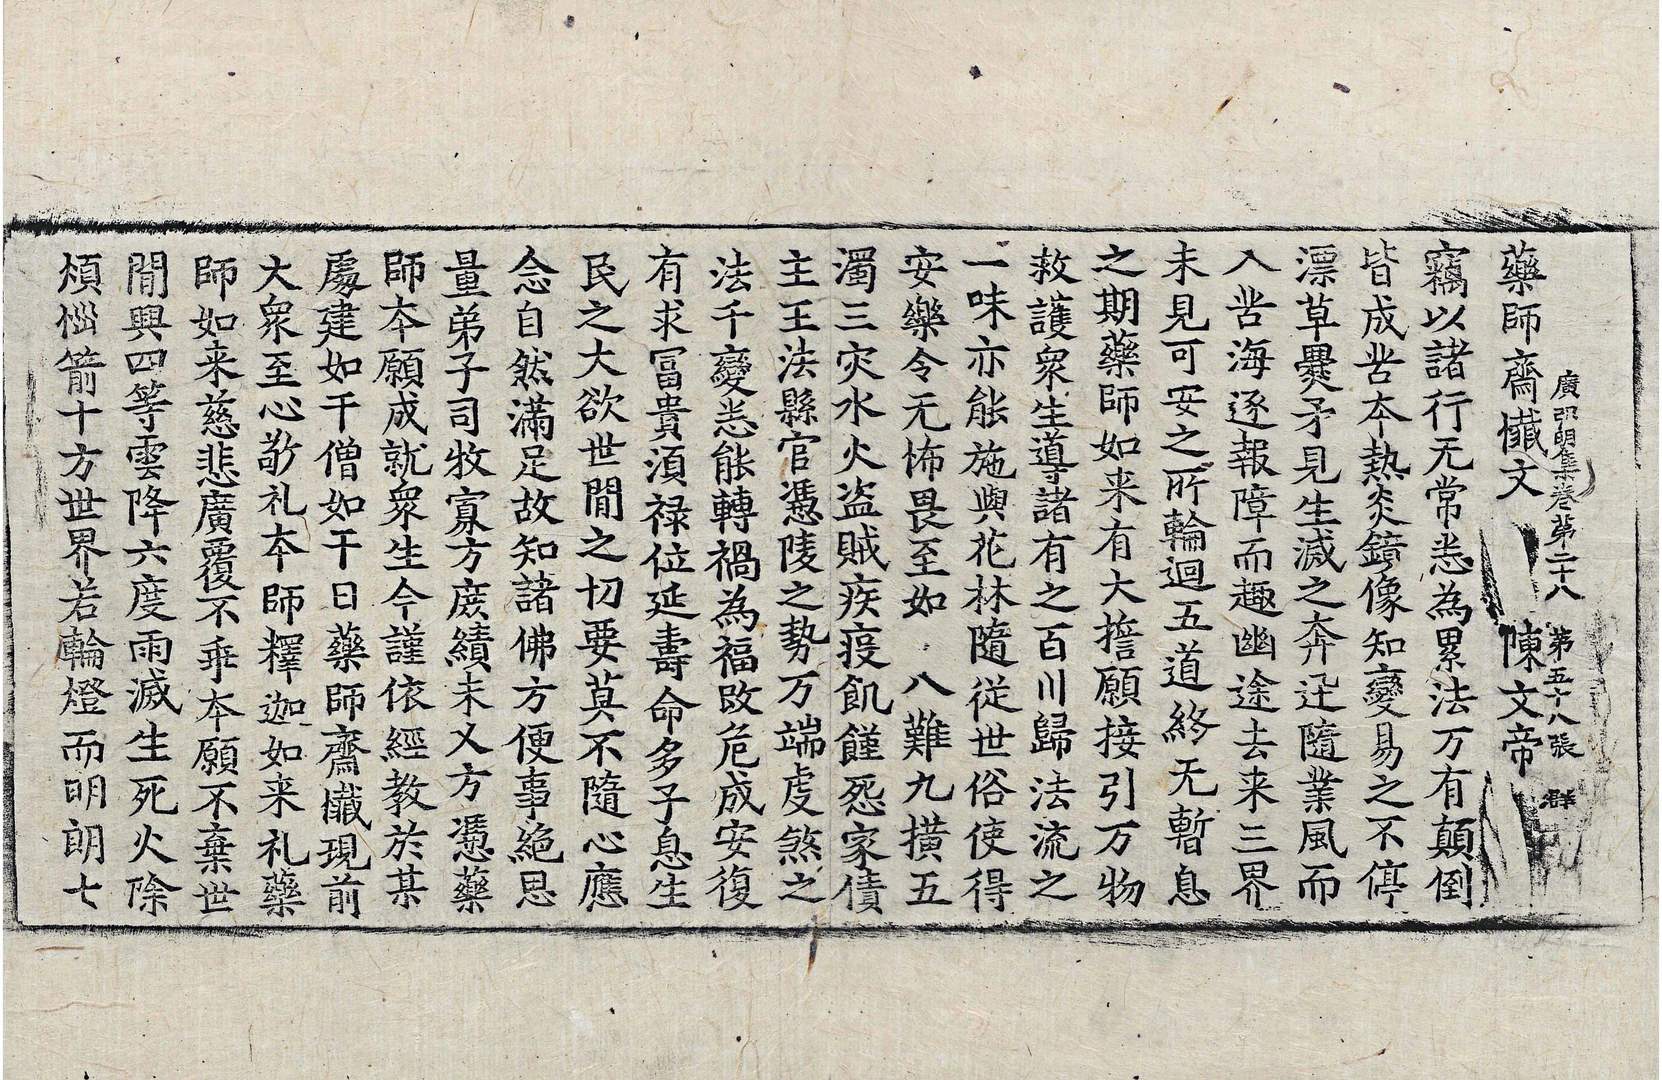 廣弘明集卷第二十八 第五十八張 群
藥師齋懺文 陳文帝
竊以諸行无常悉為累法万有顛倒
皆成苦夲熱炎鏡像知變易之不停
漂草爨矛見生滅之奔迅隨業風而
入苦海逐報障而趣幽途去来三界
未見可安之所輪迴五道終无暫息
之期藥師如来有大誓願接引万物
救護衆生導諸有之百川歸法流之
一味亦能施與花林隨從世俗使得
安樂令无怖畏至如八難九橫五
濁三灾水火盜賊疾疫飢饉怨家債
主王法縣官憑陵之勢万端虔煞之
法千變悉能轉禍為福改危成安復
有求冨貴須禄位延壽命多子息生
民之大欲世間之切要莫不隨心應
念自然滿足故知諸佛方便事絶思
量弟子司牧寡方庶績未乂方憑藥
師夲願成就衆生今謹依經教於某
處建如干僧如干日藥師齋懺現前
大衆至心敬礼夲師釋迦如来礼藥
師如来慈悲廣覆不乖夲願不棄世
間興四等雲降六度雨滅生死火除
煩惱箭十方世界若輪燈而明朗七